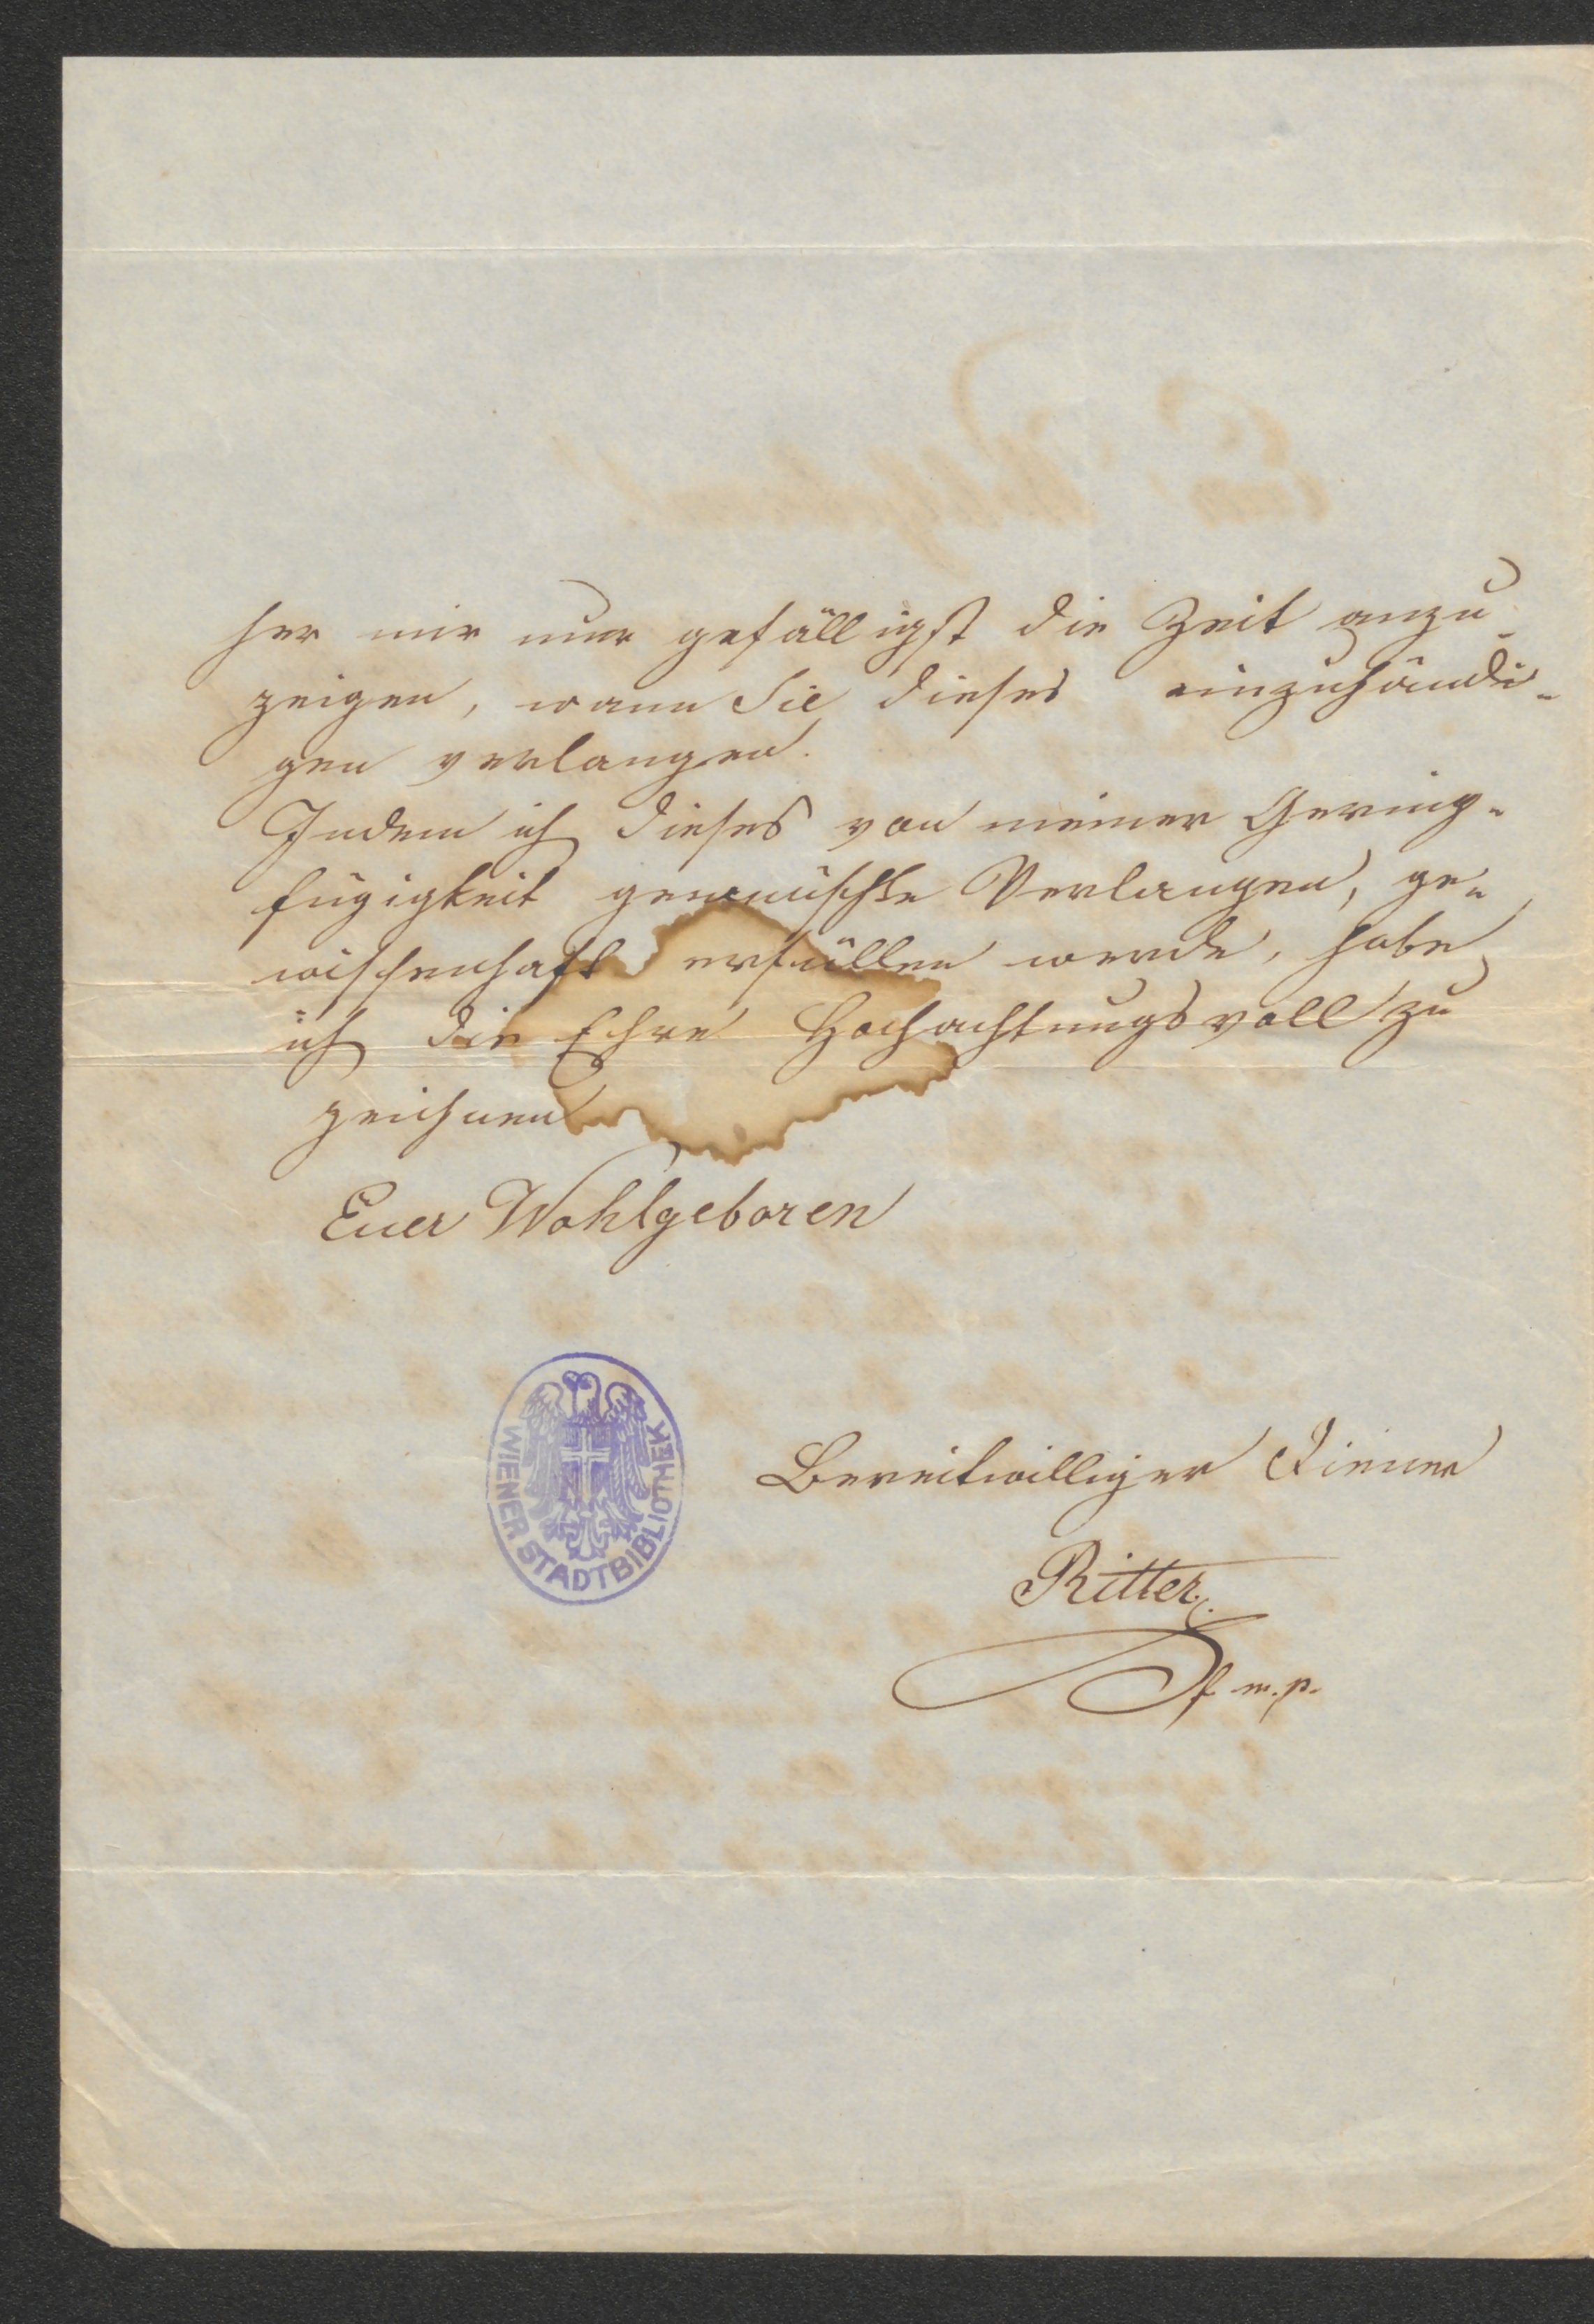 her mir nur gefälligst die Zeit anzu-
zeigen, wann Sie dieses einzuhändi-
gen verlangen.
Indem ich dieses von meiner Gering-
fügigkeit gewünschte Verlangen, ge-
wissenhaft erfüllen werde, habe
ich die Ehre Hochachtungsvoll zu
zeichnen
Euer Wohlgeboren
Bereitwilliger Diener
Ritter
m.p.
WIENER STADTBIBLIOTHEK